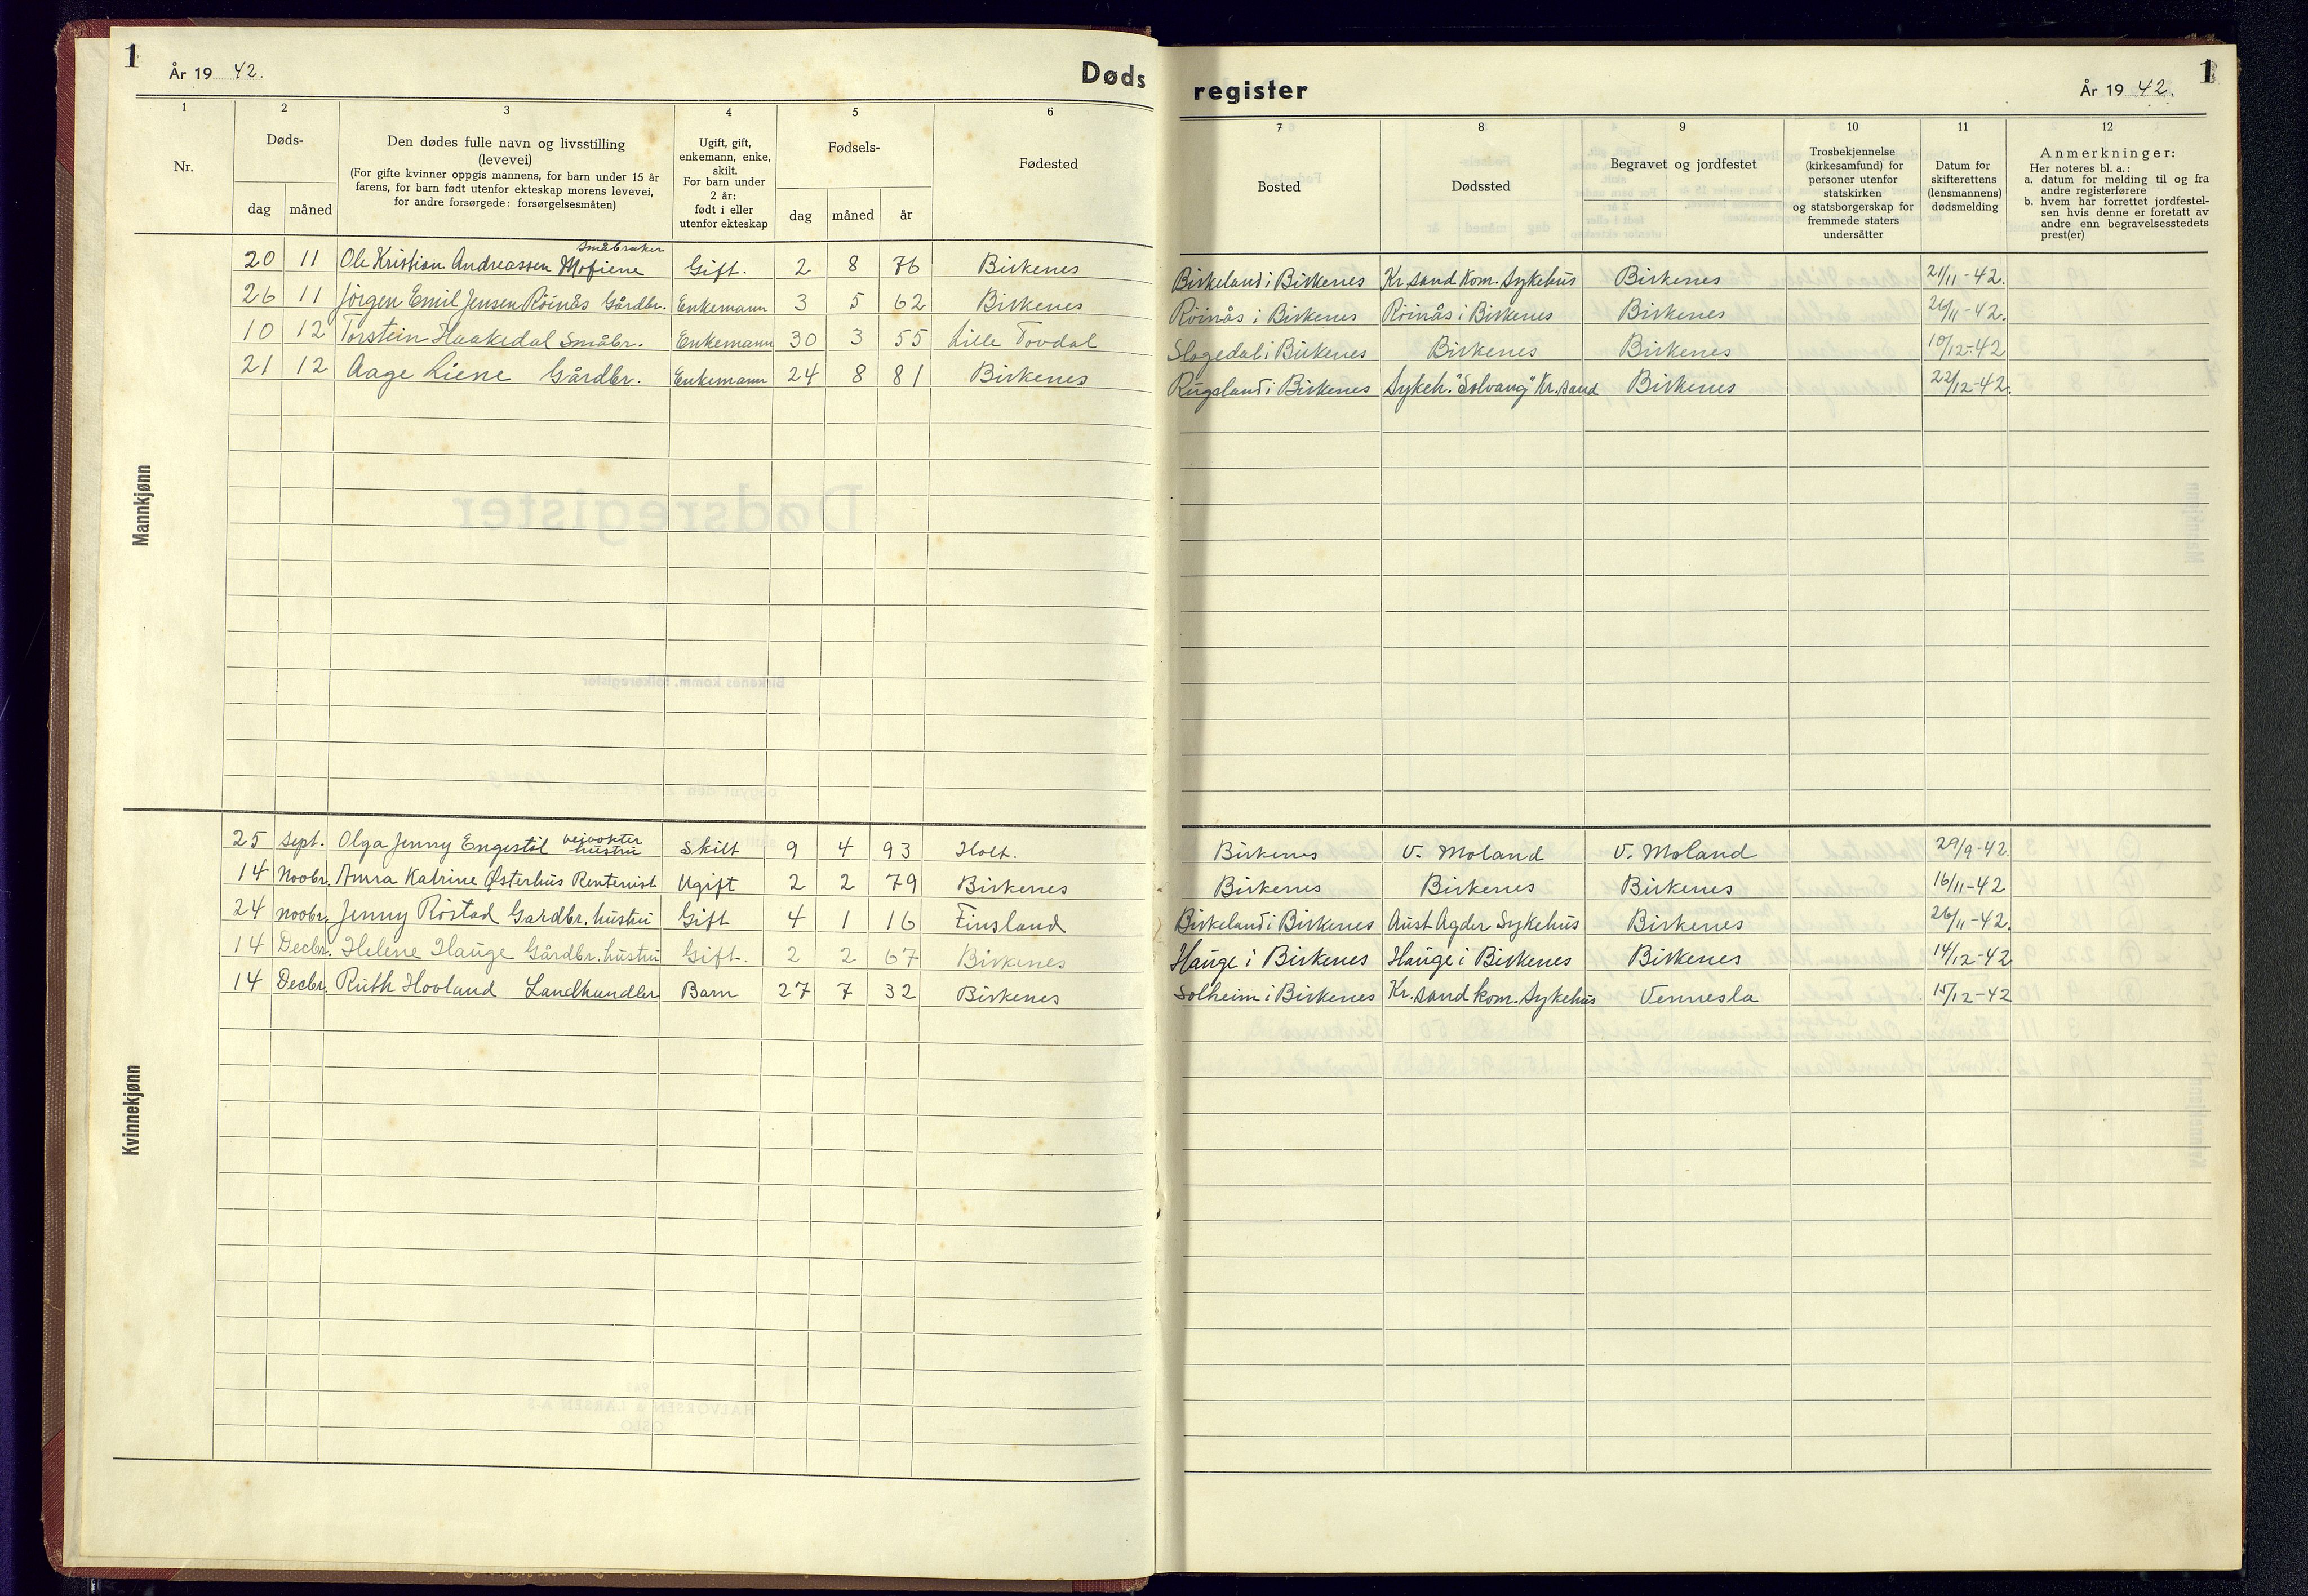 1
År 19 42.
Døds
register
År 19 42.
1
1 2 3 4 5 6
Nr.
Døds-
dag måned
Den dødes fulle navn og livsstilling
(levevei)
(For gifte kvinner oppgis mannens, for barn under 15 år
farens, for barn født utenfor ekteskap morens levevei,
for andre forsørgede: forsørgelsesmåten)
Ugift, gift,
enkemann, enke,
skilt.
For barn under
2 år:
født i eller
utenfor ekteskap
Fødsels-
dag måned år
Fødested
7 8 9 10 11 12
Bosted
Dødssted
Begravet og jordfestet
Trosbekjennelse
(kirkesamfund) for
personer utenfor
statskirken
og statsborgerskap for
fremmede staters
undersåtter
Datum for
skifterettens
(lensmannens)
dødsmelding
Anmerkninger:
Her noteres bl. a.:
a. datum for melding til og fra
andre registerførere
b. hvem har forrettet jordfestel-
sen hvis denne er foretatt av
andre enn begravelsesstedets
prest(er)
Mannkjønn
Småbruker
20 11 Ole Kristian Andreassen Mofiene Gift. 2 8 76 Birkenes Birkeland i Birkenes Kr.sand kom. Sykehus Birkenes 21/11-42.
26 11 Jörgen Emil Jensen Röinås Gårdbr. Enkemann 3 5 62 Birkenes Röinås i Birkenes Röinås i Birkenes Birkenes 26/11-42.
10 12 Torstein Haakedal Småbr. Enkemann 30 3 55 Lille Tovdal Slogedal i Birkenes Birkenes Birkenes 10/12-42
21 12 Aage Liene Gårdbr. Enkemann 24 8 81 Birkenes Rugsland i Birkenes Sykeh. "Solvang" Kr.sand Birkenes 22/12-42.
Kvinnekjønn
25 Sept. Olga Jenny Engestöl veivokter hustru Skilt 9 4 93 Holt. Birkenes V. Moland V. Moland 29/9-42.
14 Novbr. Anna Katrine Østerhus Rentenist Ugift 2 2 79 Birkenes Birkenes Birkenes Birkenes 16/11-42
24 Novbr. Jenny Röstad Gardbr. hustru Gift 4 1 16 Finsland Birkeland i Birkenes Aust Agder Sykehus Birkenes 26/11-42.
14 Decbr. Helene Hauge Gårdbr. hustru Gift. 2 2 67 Birkenes Hauge i Birkenes Hauge i Birkenes Birkenes 14/12-42
14 Decbr. Ruth Hovland Landhandler Barn 27 7 32 Birkenes Solheim i Birkenes Kr.sand kom. Sykehus Vennesla 15/12-42